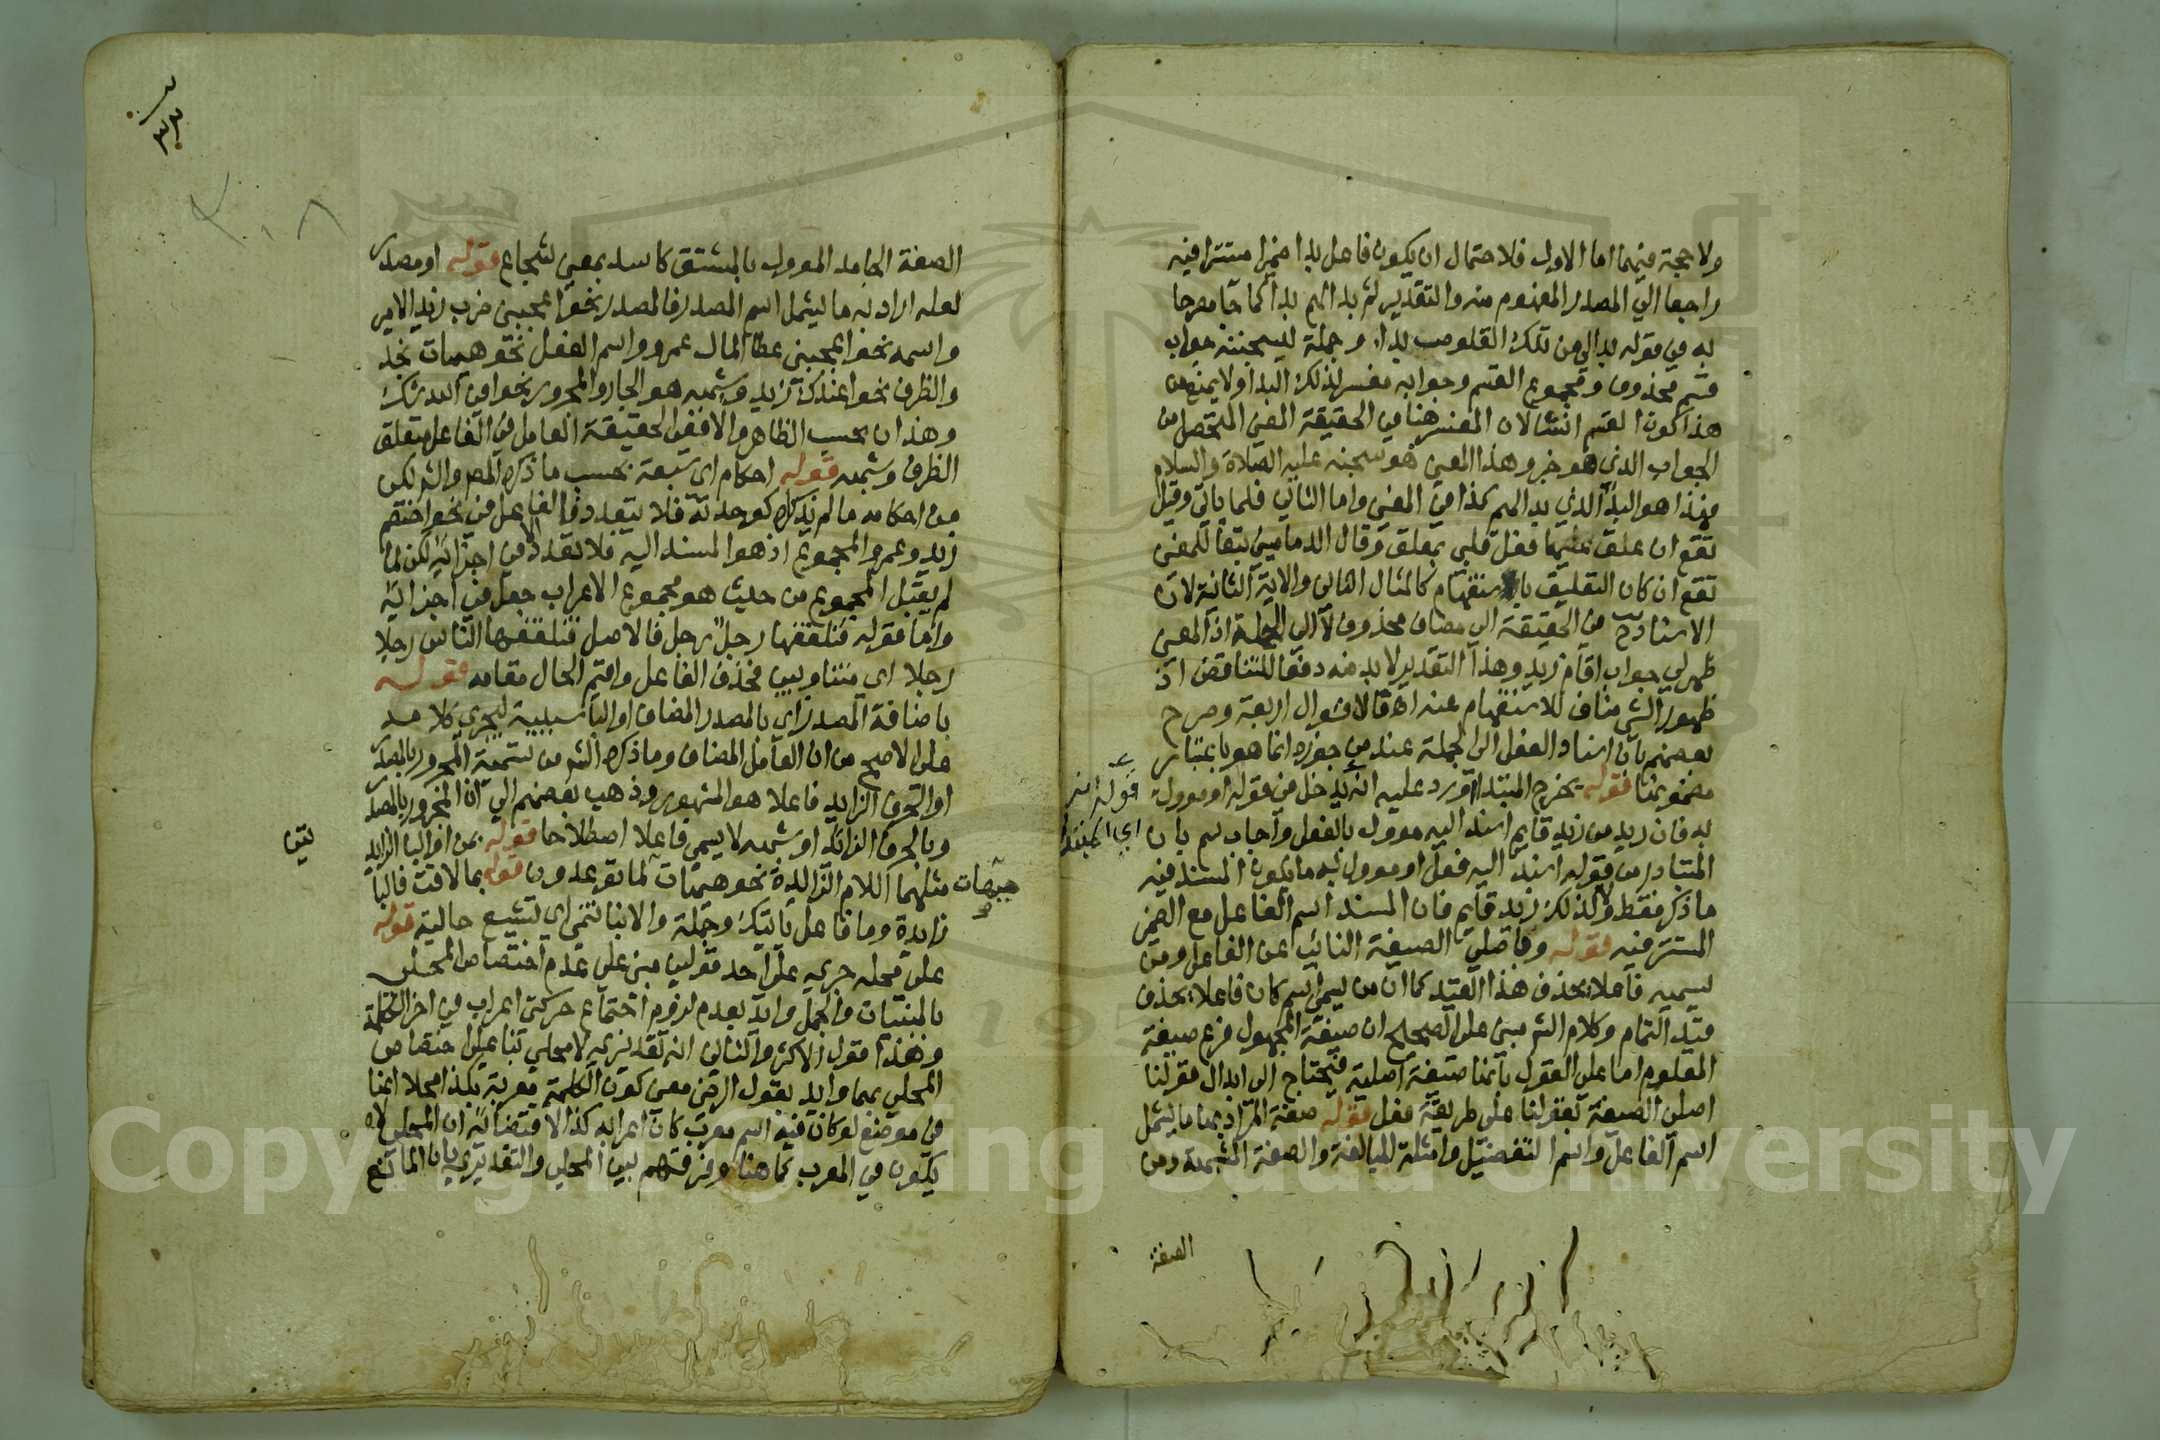 ولا حجة فيهما اما الاول فلاحتمال ان يكون فاعل بدا ضميرا مستترا فيه
راجعا الى المصدر المفهوم منه والتقدير ثم بدا لهم بداء كما جا مصرحا
به في قوله بدا لي من تلك القلوص بداء وجملة ليسجننه جواب
قسم محذوف ومجموع القسم وجوابه مفسر لذلك البداء ولا يمنع من
هذا كون القسم انشا لان المفسر هنا في الحقيقة المعنى المتحصل من
الجواب الذي هو خبر وهذا المعنى هو سجنه عليه الصلاة والسلام
فهذا هو البداء الذي بدا لهم كذا في المغنى واما الثاني فلما ياتي وقيل
تقع ان علق عليها فعل قلبي بمعلق وقال الدماميني تبعا للمغنى
تقع ان كان التعليق باستفهام كالمثال الثاني والاية الثانية لان
الاسناد ح في الحقيقة الى مضاف محذوف لا الى الجملة اذ المعنى
ظهر لي جواب اقام زيد وهذا التقدير لا بد منه دفعا للتناقض اذ
ظهور الشى مناف للاستفهام عنه اه فالاقوال اربعة وصرح
بعضهم بان اسناد الفعل الى الجملة عند من جوزه انما هو باعتبار
مضمونها قوله يخرج المبتدا اورد عليه انه يدخل في قوله او موول
به فان زيد من زيد قايم اسند اليه موول بالفعل واجاب سم بان
المتبادر من قوله اسند اليه فعل او موول به ما يكون المسند فيه
ما ذكر فقط ولا كذلك زيد قايم فان المسند اسم الفاعل مع الضمير
المستتر فيه قوله واصلي الصيغة النائب عن الفاعل ومن
يسميه فاعلا يحذف هذا القيد كما ان من يسمي اسم كان فاعلا يحذف
قيد التمام وكلام الش مبنى على الصحيح ان صيغة المجهول فرع صيغة
المعلوم اما على القول بانها صيغة اصلية فيحتاج الى ابدال قولنا
اصلي الصيغة بقولنا على طريقة فعل قوله صفة المراد بها ما يشمل
اسم الفاعل واسم التفضيل وامثلة المبالغة والصفة المشبهة ومن
الصفة
قوله
اي
الصفة الجامد الموول بالمشتق كاسد بمعنى شجاع قوله او مصدر
لعله اراد به ما يشمل اسم المصدر فالمصدر نحو اعجبني ضرب زيد الامير
واسمه نحو اعجبني عطا المال عمرو واسم الفعل نحو هيهات نجد
والظرف نحو اعندك زيد وشبهه هو الجار والمجرور نحو افي الله شك
وهذان بحسب الظاهر والا ففي الحقيقة العامل في الفاعل متعلق
الظرف وشبهه قوله احكام اى سبعة بحسب ما ذكره المص والش لكن
من احكامه ما لم يذكراه كوحدته فلا يتعدد فالفاعل في نحو اختصم
زيد وعمرو المجموع اذ هو المسند اليه فلا تعدد الا في اجزائه لكن لما
لم يقبل المجموع من حيث هو مجموع الاعراب جعل في اجزائه
واما قوله فتلقفها رجل رجل فالاصل فتلقفها الناس رجلا
رجلا اى متناوبين فحذف الفاعل واقيم الحال مقامه قوله
باضافة المصدر اي بالمصدر المضاف او البا سببية ليجري كلامه
على الاصح من ان العامل المضاف وما ذكره الش من تسمية المجرور بالمصدر
او الحرف الزايد فاعلا هو المشهور وذهب بعضهم الى ان المجرور بالمصدر
وبالحرف الزائد او شبهه لا يسمى فاعلا اصطلاحا قوله بمن او البا الزايد
مثلهما اللام الزائدة نحو هيهات لما توعدون قوله بما لاقت فالبا
زايدة وما فاعل ياتيك وجملة والانبا تنمي اى تشيع حالية قوله
على محله جرى على احد قولين مبنى على عدم اختصاص المحلي
بالمبنيات والجمل وايد بعدم لزوم اجتماع حركتي اعراب في اخر الكلمة
وهذا قول الاكثر والثاني انه تقديري لا محلي بنا على اختصاص
المحلي بهما وايد بقول الرضى معنى كون الكلمة معربة بكذا محلا انها
في موضع لو كان فيه اسم معرب كان اعرابه كذا لاقتضائه ان المحلي لا
يكون في المعرب كما هنا وفرقهم بين المحلي والتقديري بان المانع
هيهات